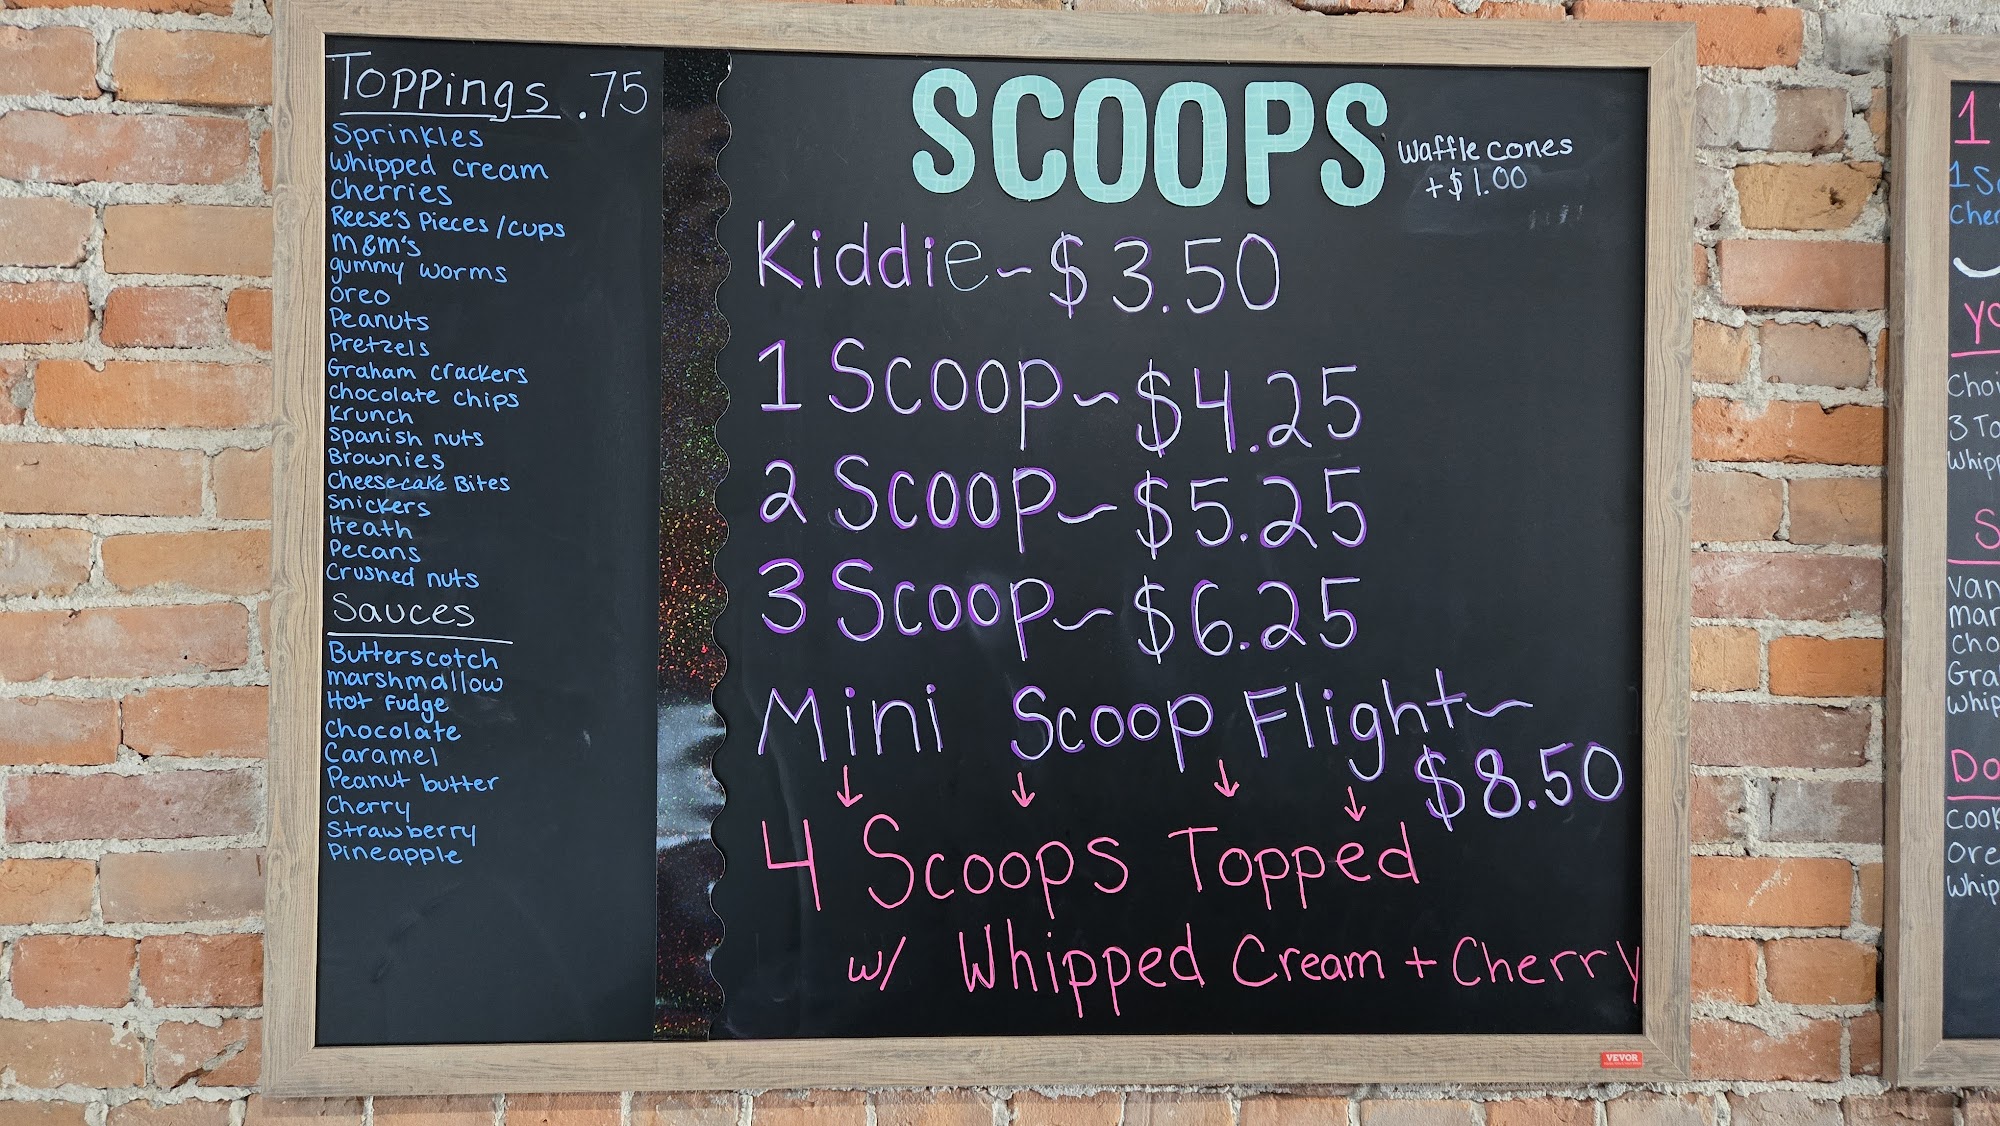 Toppings .75
Sprinkles
Whipped cream
Cherries
Reese's Pieces/cups
M&M's
gummy worms
Oreo
Peanuts
Pretzels
Graham crackers
Chocolate chips
Krunch
Spanish nuts
Brownies
Cheesecake Bites
Snickers
Heath
Pecans
Crushed nuts
Sauces
Butterscotch
marshmallow
Hot Fudge
Chocolate
Caramel
Peanut butter
Cherry
Strawberry
Pineapple
SCOOPS
Waffle cones
+$1.00
Kiddie~$3.50
1 Scoop~$4.25
2 Scoop~$5.25
3 Scoop~$6.25
Mini Scoop Flight~
$8.50
4 Scoops Topped
w/ Whipped Cream + Cherry
VEVOR
1
3